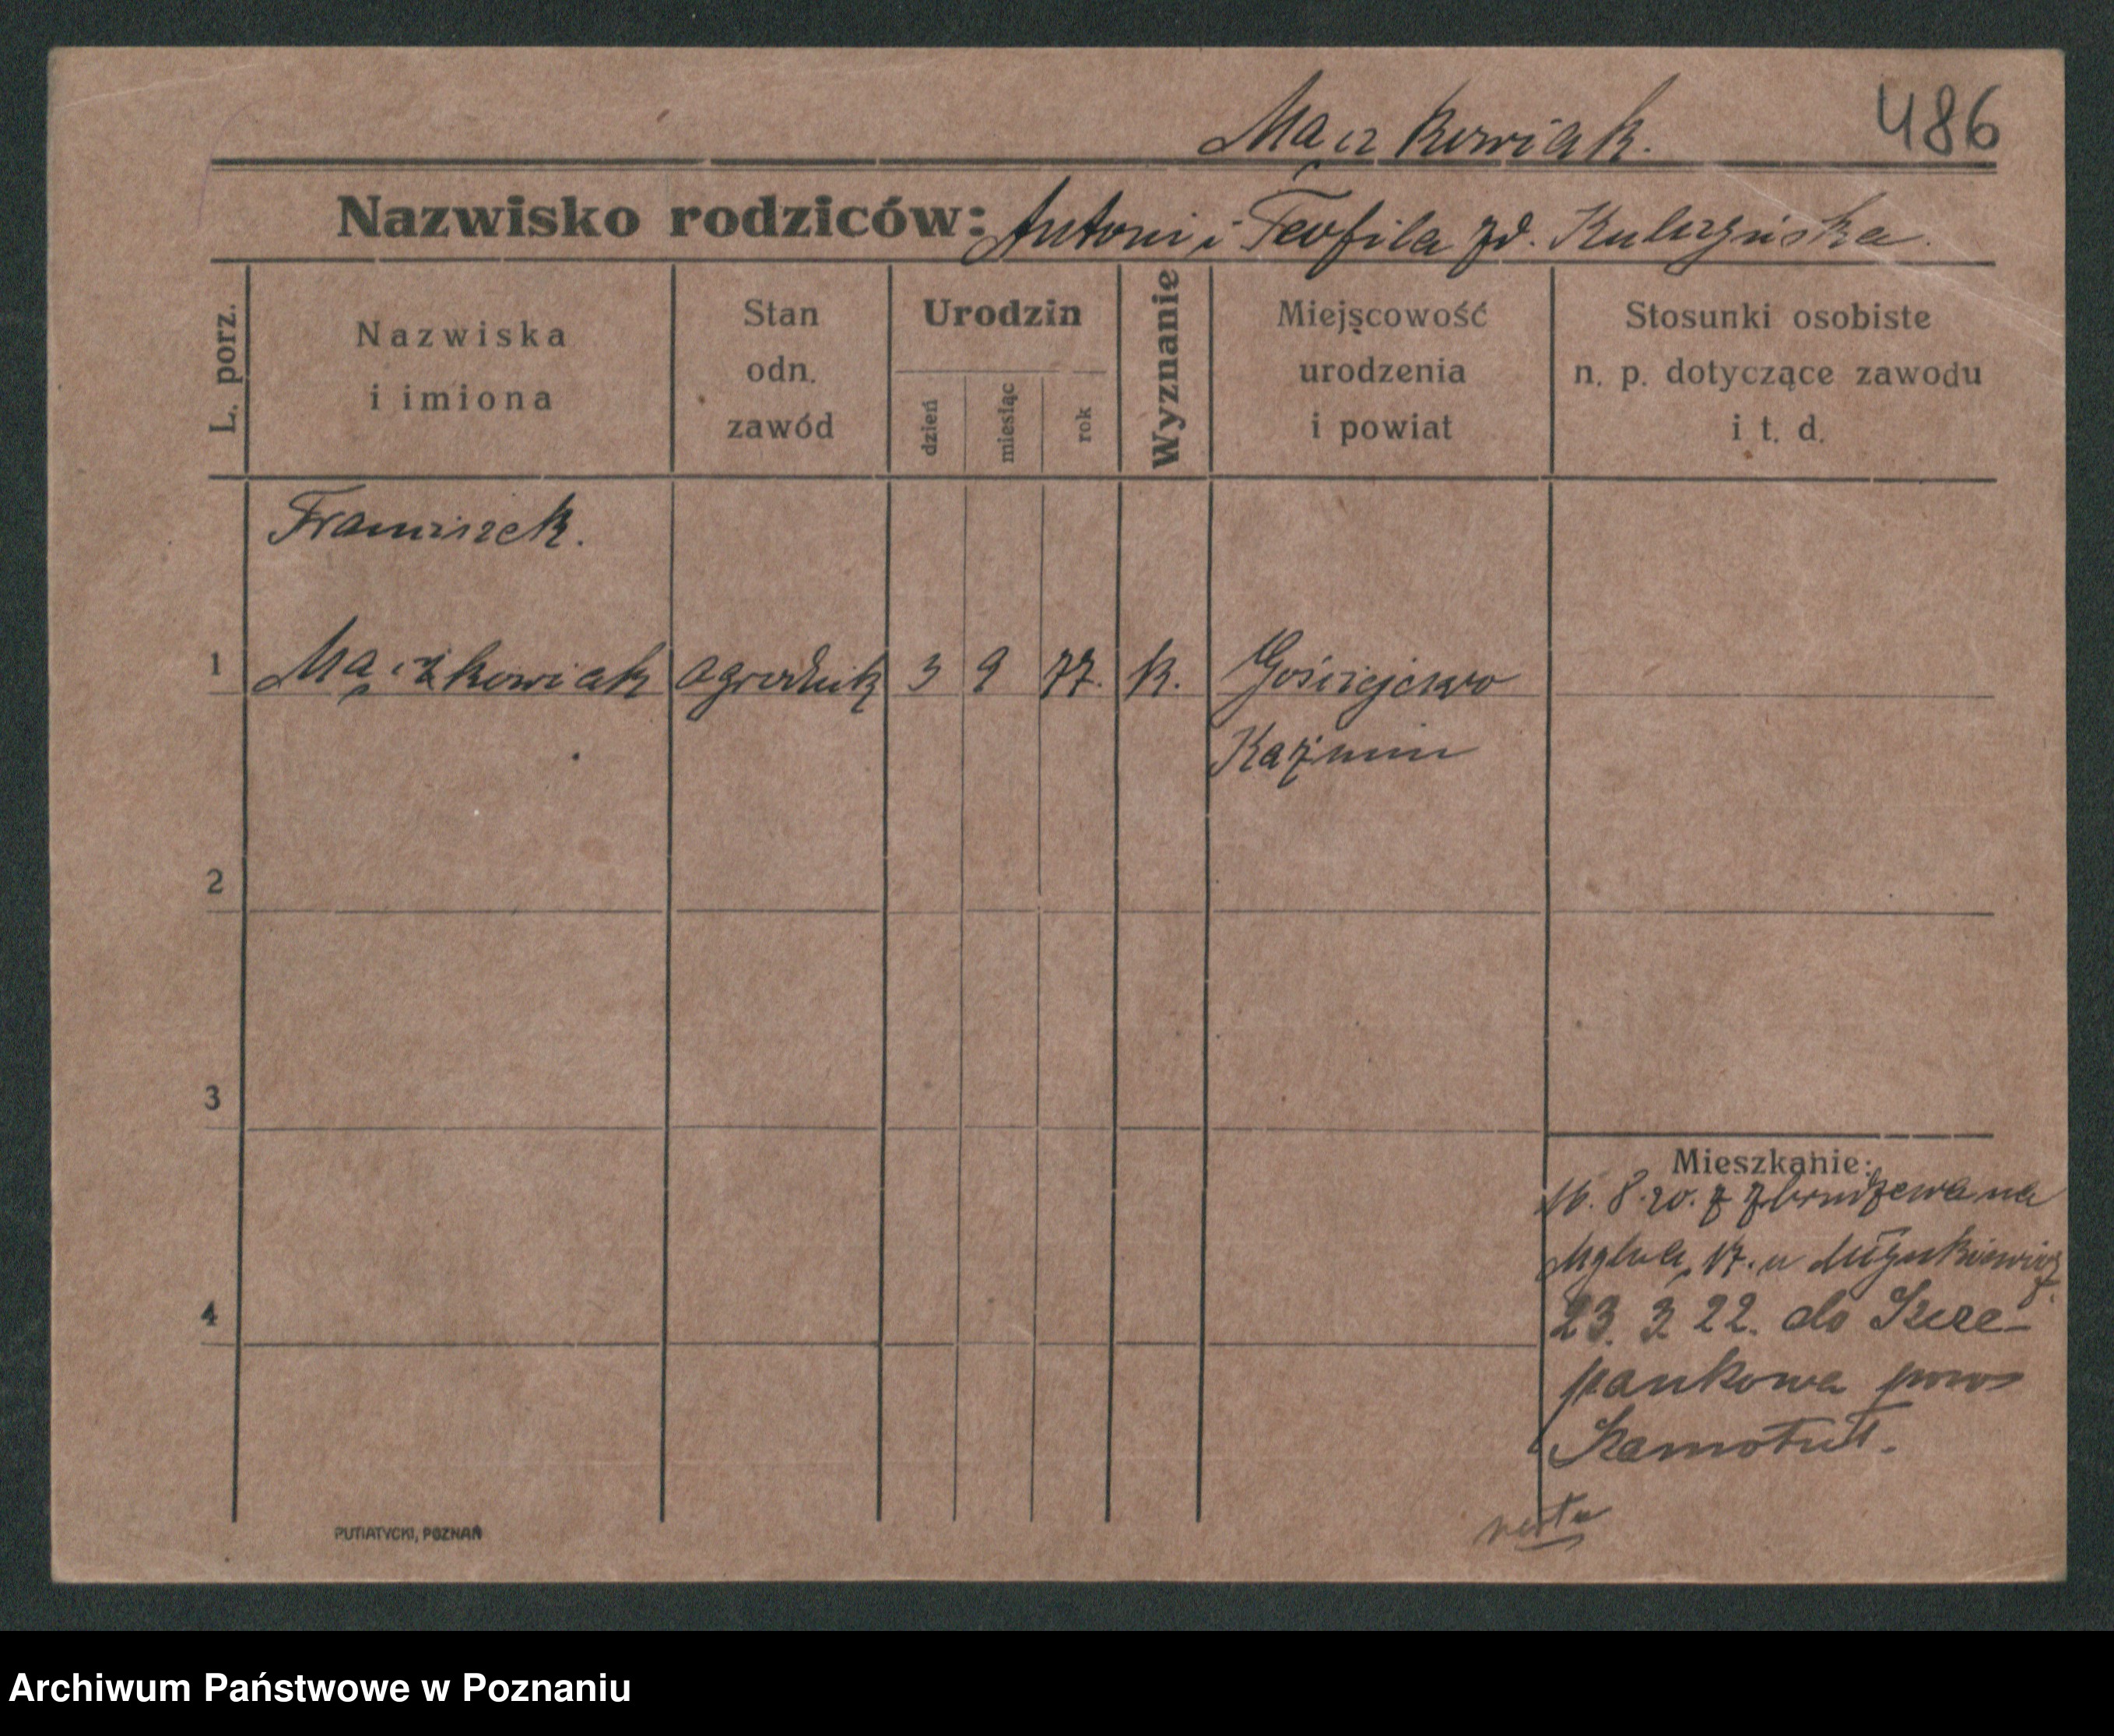 Mączkowiak.
486
Nazwisko rodziców: Antoni i Teofila zd. Kulczyńska.
L. porz.
Nazwiska
i imiona
Stan
odn.
zawód
Urodzin
dzień
miesiąc
rok
Wyznanie
Miejscowość
urodzenia
i powiat
Stosunki osobiste
n. p. dotyczące zawodu
i t. d.
Franciszek.
1 Mączkowiak ogrodnik 3 9 77. k. Gościejewo
Kaźmin
2
3
Mieszkanie:
16. 8. 20. z na
17. u
4
23. 3 22. do Szcze-
pankowa pow
Szamotuł.
PUTIATYCKI, POZNAŃ
Archiwum Państwowe w Poznaniu